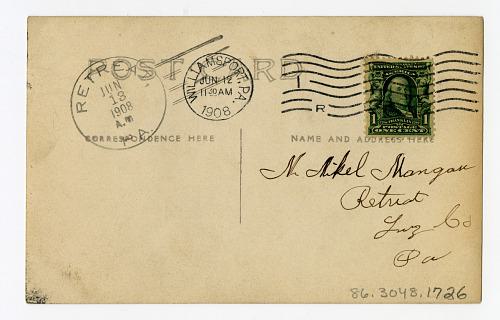 POST CARD
RETREAT
JUN
13
1908
A.M
PA.
WILLIAMSPORT, PA.
JUN 12
11 30 AM
1908
1
R
1 POSTAGE 1
ONE CENT
CORRESPONDENCE HERE
NAME AND ADDRESS HERE
Mr Mikel Mangan
Retreat
Luz Co
Pa
86.3048.1726